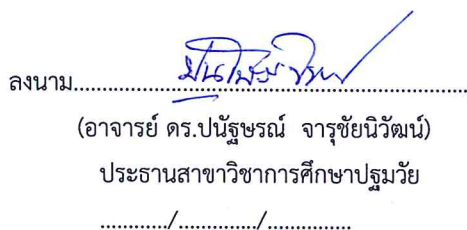 ลงนาม........................................................................
(อาจารย์ ดร.ปนัฐษรณ์ จารุชัยนิวัฒน์)
ประธานสาขาวิชาการศึกษาปฐมวัย
............/............./...............